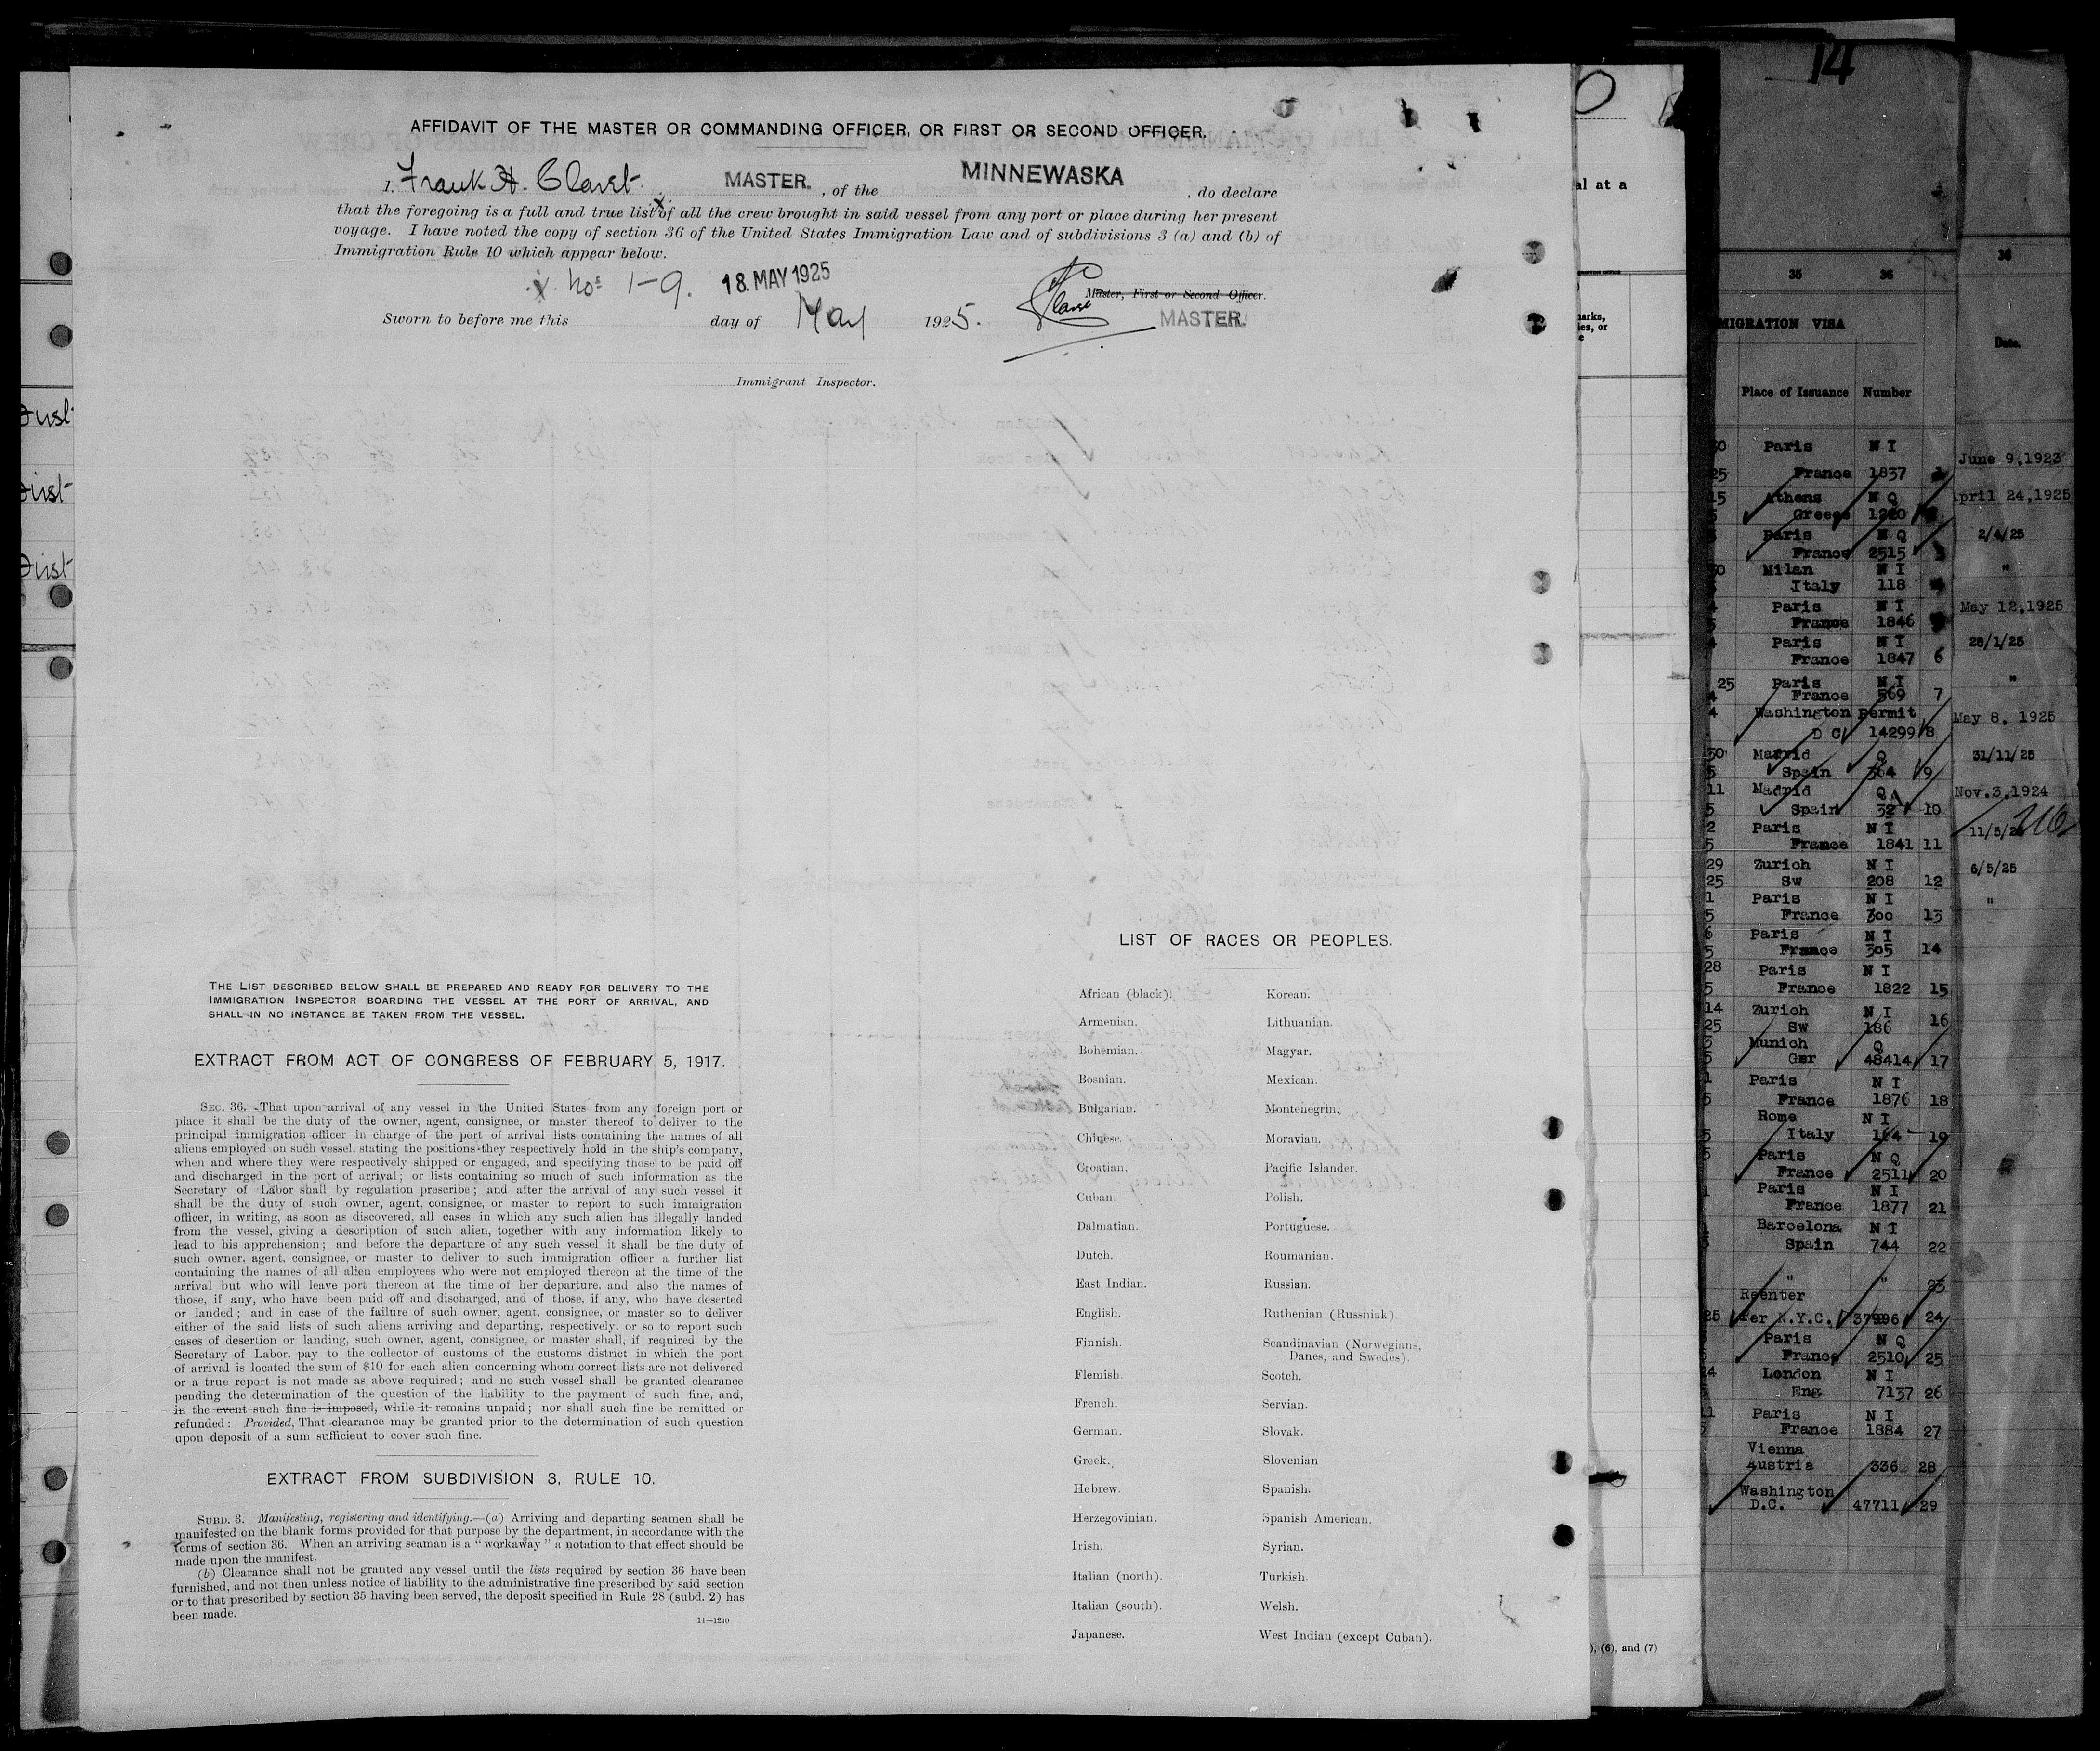 AFFIDAVIT OF THE MASTER OR COMMANDING OFFICER, OR FIRST OR SECOND OFFICER.
I, Frank H. Claret, MASTER., of the MINNEWASKA, do declare
that the foregoing is a full and true list x of all the crew brought in said vessel from any port or place during her present
voyage. I have noted the copy of section 36 of the United States Immigration Law and of subdivisions 3 (a) and (b) of
Immigration Rule 10 which appear below.
x. Nos 1-9. 18. MAY 1925
Master, First or Second Officer.
Sworn to before me this day of May 1925. Claret MASTER.
Immigrant Inspector.
THE LIST DESCRIBED BELOW SHALL BE PREPARED AND READY FOR DELIVERY TO THE
IMMIGRATION INSPECTOR BOARDING THE VESSEL AT THE PORT OF ARRIVAL, AND
SHALL IN NO INSTANCE BE TAKEN FROM THE VESSEL.
EXTRACT FROM ACT OF CONGRESS OF FEBRUARY 5, 1917.
SEC. 36. That upon arrival of any vessel in the United States from any foreign port or
place it shall be the duty of the owner, agent, consignee, or master thereof to deliver to the
principal immigration officer in charge of the port of arrival lists containing the names of all
aliens employed on such vessel, stating the positions they respectively hold in the ship's company,
when and where they were respectively shipped or engaged, and specifying those to be paid off
and discharged in the port of arrival; or lists containing so much of such information as the
Secretary of Labor shall by regulation prescribe; and after the arrival of any such vessel it
shall be the duty of such owner, agent, consignee, or master to report to such immigration
officer, in writing, as soon as discovered, all cases in which any such alien has illegally landed
from the vessel, giving a description of such alien, together with any information likely to
lead to his apprehension; and before the departure of any such vessel it shall be the duty of
such owner, agent, consignee, or master to deliver to such immigration officer a further list
containing the names of all alien employees who were not employed thereon at the time of the
arrival but who will leave port thereon at the time of her departure, and also the names of
those, if any, who have been paid off and discharged, and of those, if any, who have deserted
or landed; and in case of the failure of such owner, agent, consignee, or master so to deliver
either of the said lists of such aliens arriving and departing, respectively, or so to report such
cases of desertion or landing, such owner, agent, consignee, or master shall, if required by the
Secretary of Labor, pay to the collector of customs of the customs district in which the port
of arrival is located the sum of $10 for each alien concerning whom correct lists are not delivered
or a true report is not made as above required; and no such vessel shall be granted clearance
pending the determination of the question of the liability to the payment of such fine, and,
in the event such fine is imposed, while it remains unpaid; nor shall such fine be remitted or
refunded: Provided, That clearance may be granted prior to the determination of such question
upon deposit of a sum sufficient to cover such fine.
EXTRACT FROM SUBDIVISION 3, RULE 10.
SUBD. 3. Manifesting, registering and identifying.—(a) Arriving and departing seamen shall be
manifested on the blank forms provided for that purpose by the department, in accordance with the
terms of section 36. When an arriving seaman is a "workaway" a notation to that effect should be
made upon the manifest.
(b) Clearance shall not be granted any vessel until the lists required by section 36 have been
furnished, and not then unless notice of liability to the administrative fine prescribed by said section
or to that prescribed by section 35 having been served, the deposit specified in Rule 28 (subd. 2) has
been made.
11—1240
LIST OF RACES OR PEOPLES.
African (black).
Armenian.
Bohemian.
Bosnian.
Bulgarian.
Chinese.
Croatian.
Cuban.
Dalmatian.
Dutch.
East Indian.
English.
Finnish.
Flemish.
French.
German.
Greek.
Hebrew.
Herzegovinian.
Irish.
Italian (north).
Italian (south).
Japanese.
Korean.
Lithuanian.
Magyar.
Mexican.
Montenegrin.
Moravian.
Pacific Islander.
Polish.
Portuguese.
Roumanian.
Russian.
Ruthenian (Russniak).
Scandinavian (Norwegians,
Danes, and Swedes).
Scotch.
Servian.
Slovak.
Slovenian
Spanish.
Spanish American.
Syrian.
Turkish.
Welsh.
West Indian (except Cuban).
al at a
), (6), and (7)
14
35 36
MIGRATION VISA
Place of Issuance Number
Paris N I
France 1837
Athens N Q
Greece
Paris N Q
France 2515
Milan N I
Italy 118
Paris N I
France 1846
Paris N I
France 1847 6
Paris N I
France 569 7
Washington Permit
D C 14299 8
Madrid Q
Spain 364 9
Madrid Q
Spain 32 10
Paris N I
France 1841 11
Zurich N I
Sw 208 12
Paris N I
France 300 13
Paris N I
France 305 14
Paris N I
France 1822 15
Zurich N I
Sw 186 16
Munich Q
Ger 48414 17
Paris N I
France 1876 18
Rome N I
Italy 164 19
Paris N Q
France 2511 20
Paris N I
France 1877 21
Barcelona N I
Spain 744 22
" " 23
Reenter
Per N.Y.C. 37996 24
Paris N Q
France 2510 25
London N I
Eng. 7137 26
Paris N I
France 1884 27
Vienna
Austria 336 28
Washington
D.C. 47711 29
Date.
June 9, 1923
April 24, 1925
2/4/25
"
May 12, 1925
28/1/25
"
May 8, 1925
31/11/25
Nov. 3, 1924
6/5/25
"